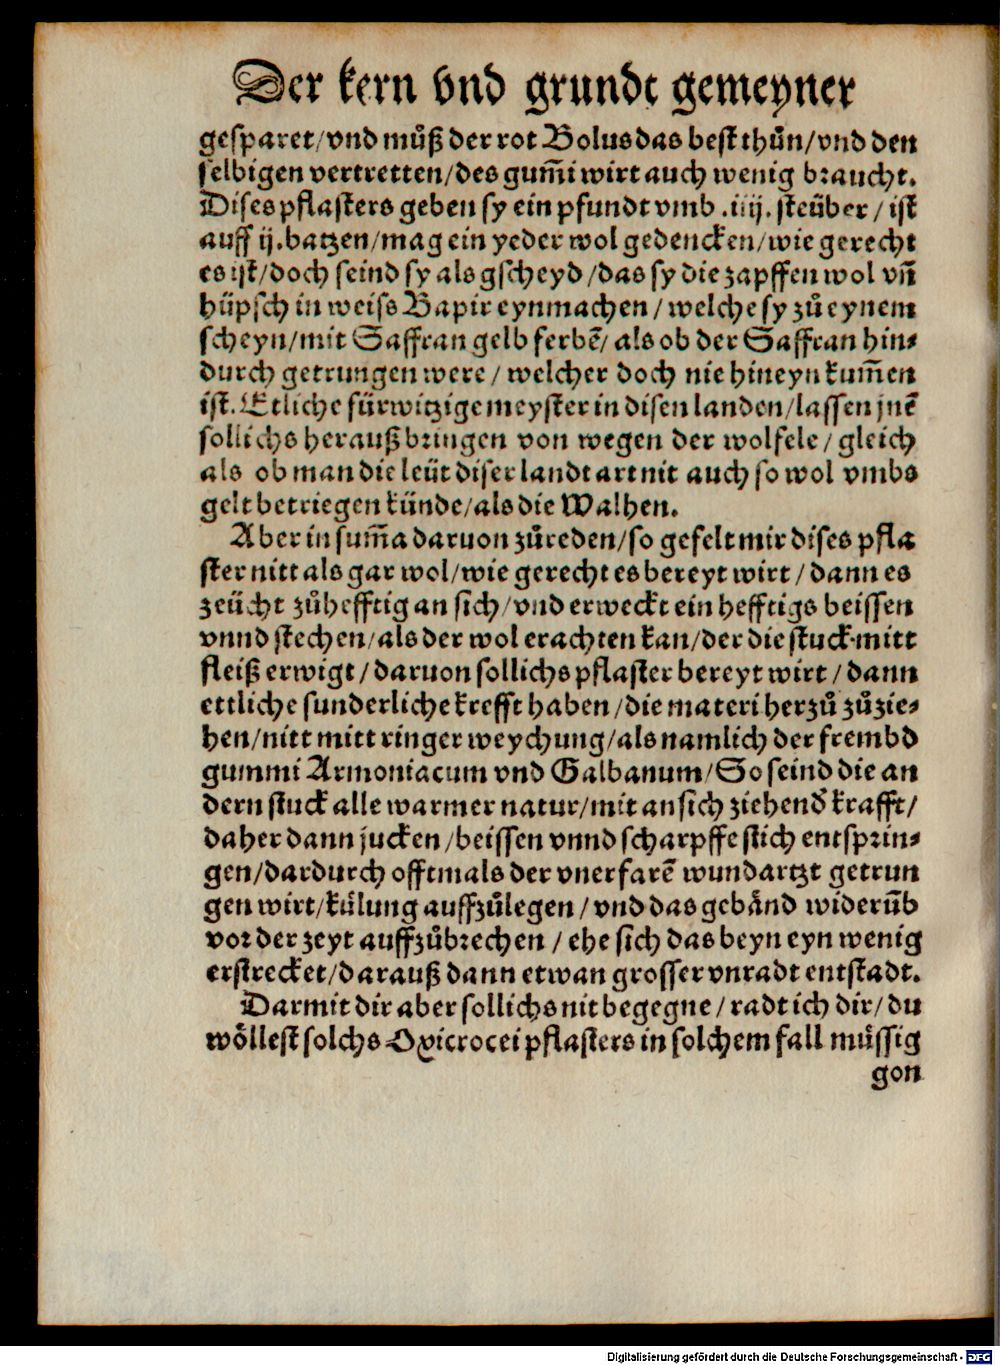 Der kern vnd grundt gemeyner
gesparet/vnd muͦß der rot Bolus das best thuͦn/vnd den
selbigen vertretten/des gum̃i wirt auch wenig braucht.
Dises pflasters geben sy ein pfundt vmb .iiij. steüber/ist
auff ij.batzen/mag ein yeder wol gedencken/wie gerecht
es ist/doch seind sy als gscheyd/das sy die zapffen wol vñ
hüpsch in weiss Bapir eynmachen/welche sy zuͦ eynem
scheyn/mit Saffran gelb ferbẽ/als ob der Saffran hin⸗
durch getrungen were/welcher doch nie hineyn kum̃en
ist. Etliche fürwitzige meyster in disen landen/lassen jnẽ
sollichs heraußbringen von wegen der wolfele/gleich
als ob man die leüt diser landt art nit auch so wol vmbs
gelt betriegen künde/als die Walhen.
Aber in sum̃a daruon zuͦreden/so gefelt mir dises pfla
ster nitt als gar wol/wie gerecht es bereyt wirt/dann es
zeücht zuͦhefftig an sich/vnd erweckt ein hefftigs beissen
vnnd stechen/als der wol erachten kan/der die stuck mitt
fleiß erwigt/daruon sollichs pflaster bereyt wirt/dann
ettliche sunderliche krefft haben/die materi herzuͦ zuͦzie⸗
hen/nitt mitt ringer weychung/als namlich der frembd
gummi Armoniacum vnd Galbanum/So seind die an
dern stuck alle warmer natur/mit an sich ziehend̃ krafft/
daher dann jucken/beissen vnnd scharpffe stich entsprin⸗
gen/dardurch offtmals der vnerfarẽ wundartzt getrun
gen wirt/kuͤlung auffzuͦlegen/vnd das gebaͤnd widerum̃b
vor der zeyt auffzuͦbrechen/ehe sich das beyn eyn wenig
erstrecket/darauß dann etwan grosser vnradt entstadt.
Darmit dir aber sollichs nit begegne/radt ich dir/du
woͤllest solchs Oxicrocei pflasters in solchem fall muͤssig
gon
Digitalisierung gefördert durch die Deutsche Forschungsgemeinschaft - DFG